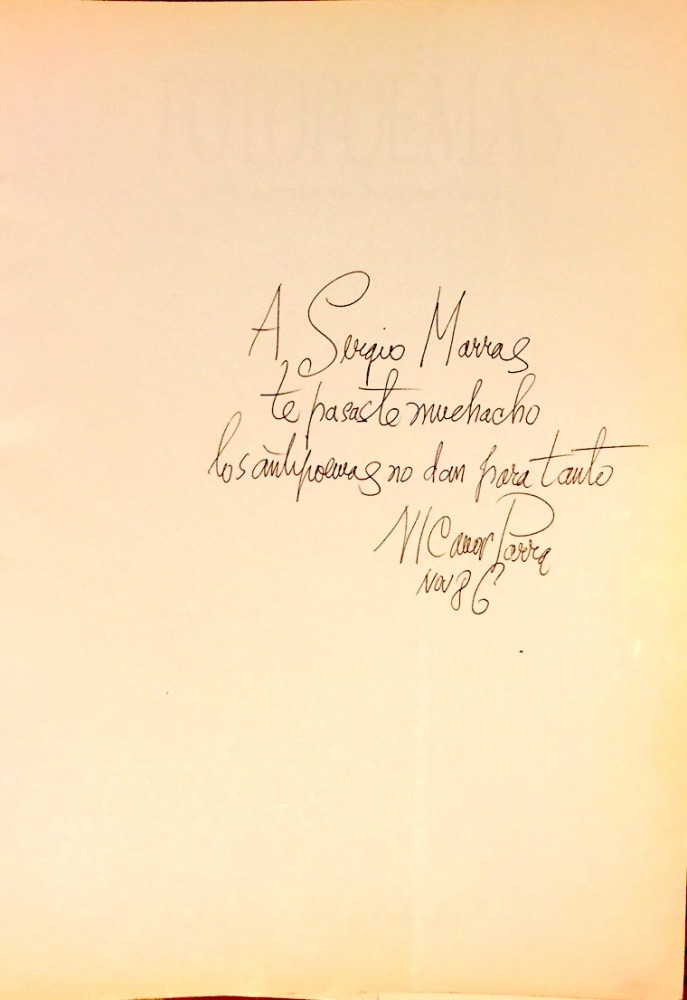 FOTOPOEMAS
A Sergio Marras
te pasaste muchacho
los antipoemas no dan para tanto
NICanor Parra
Nov 86